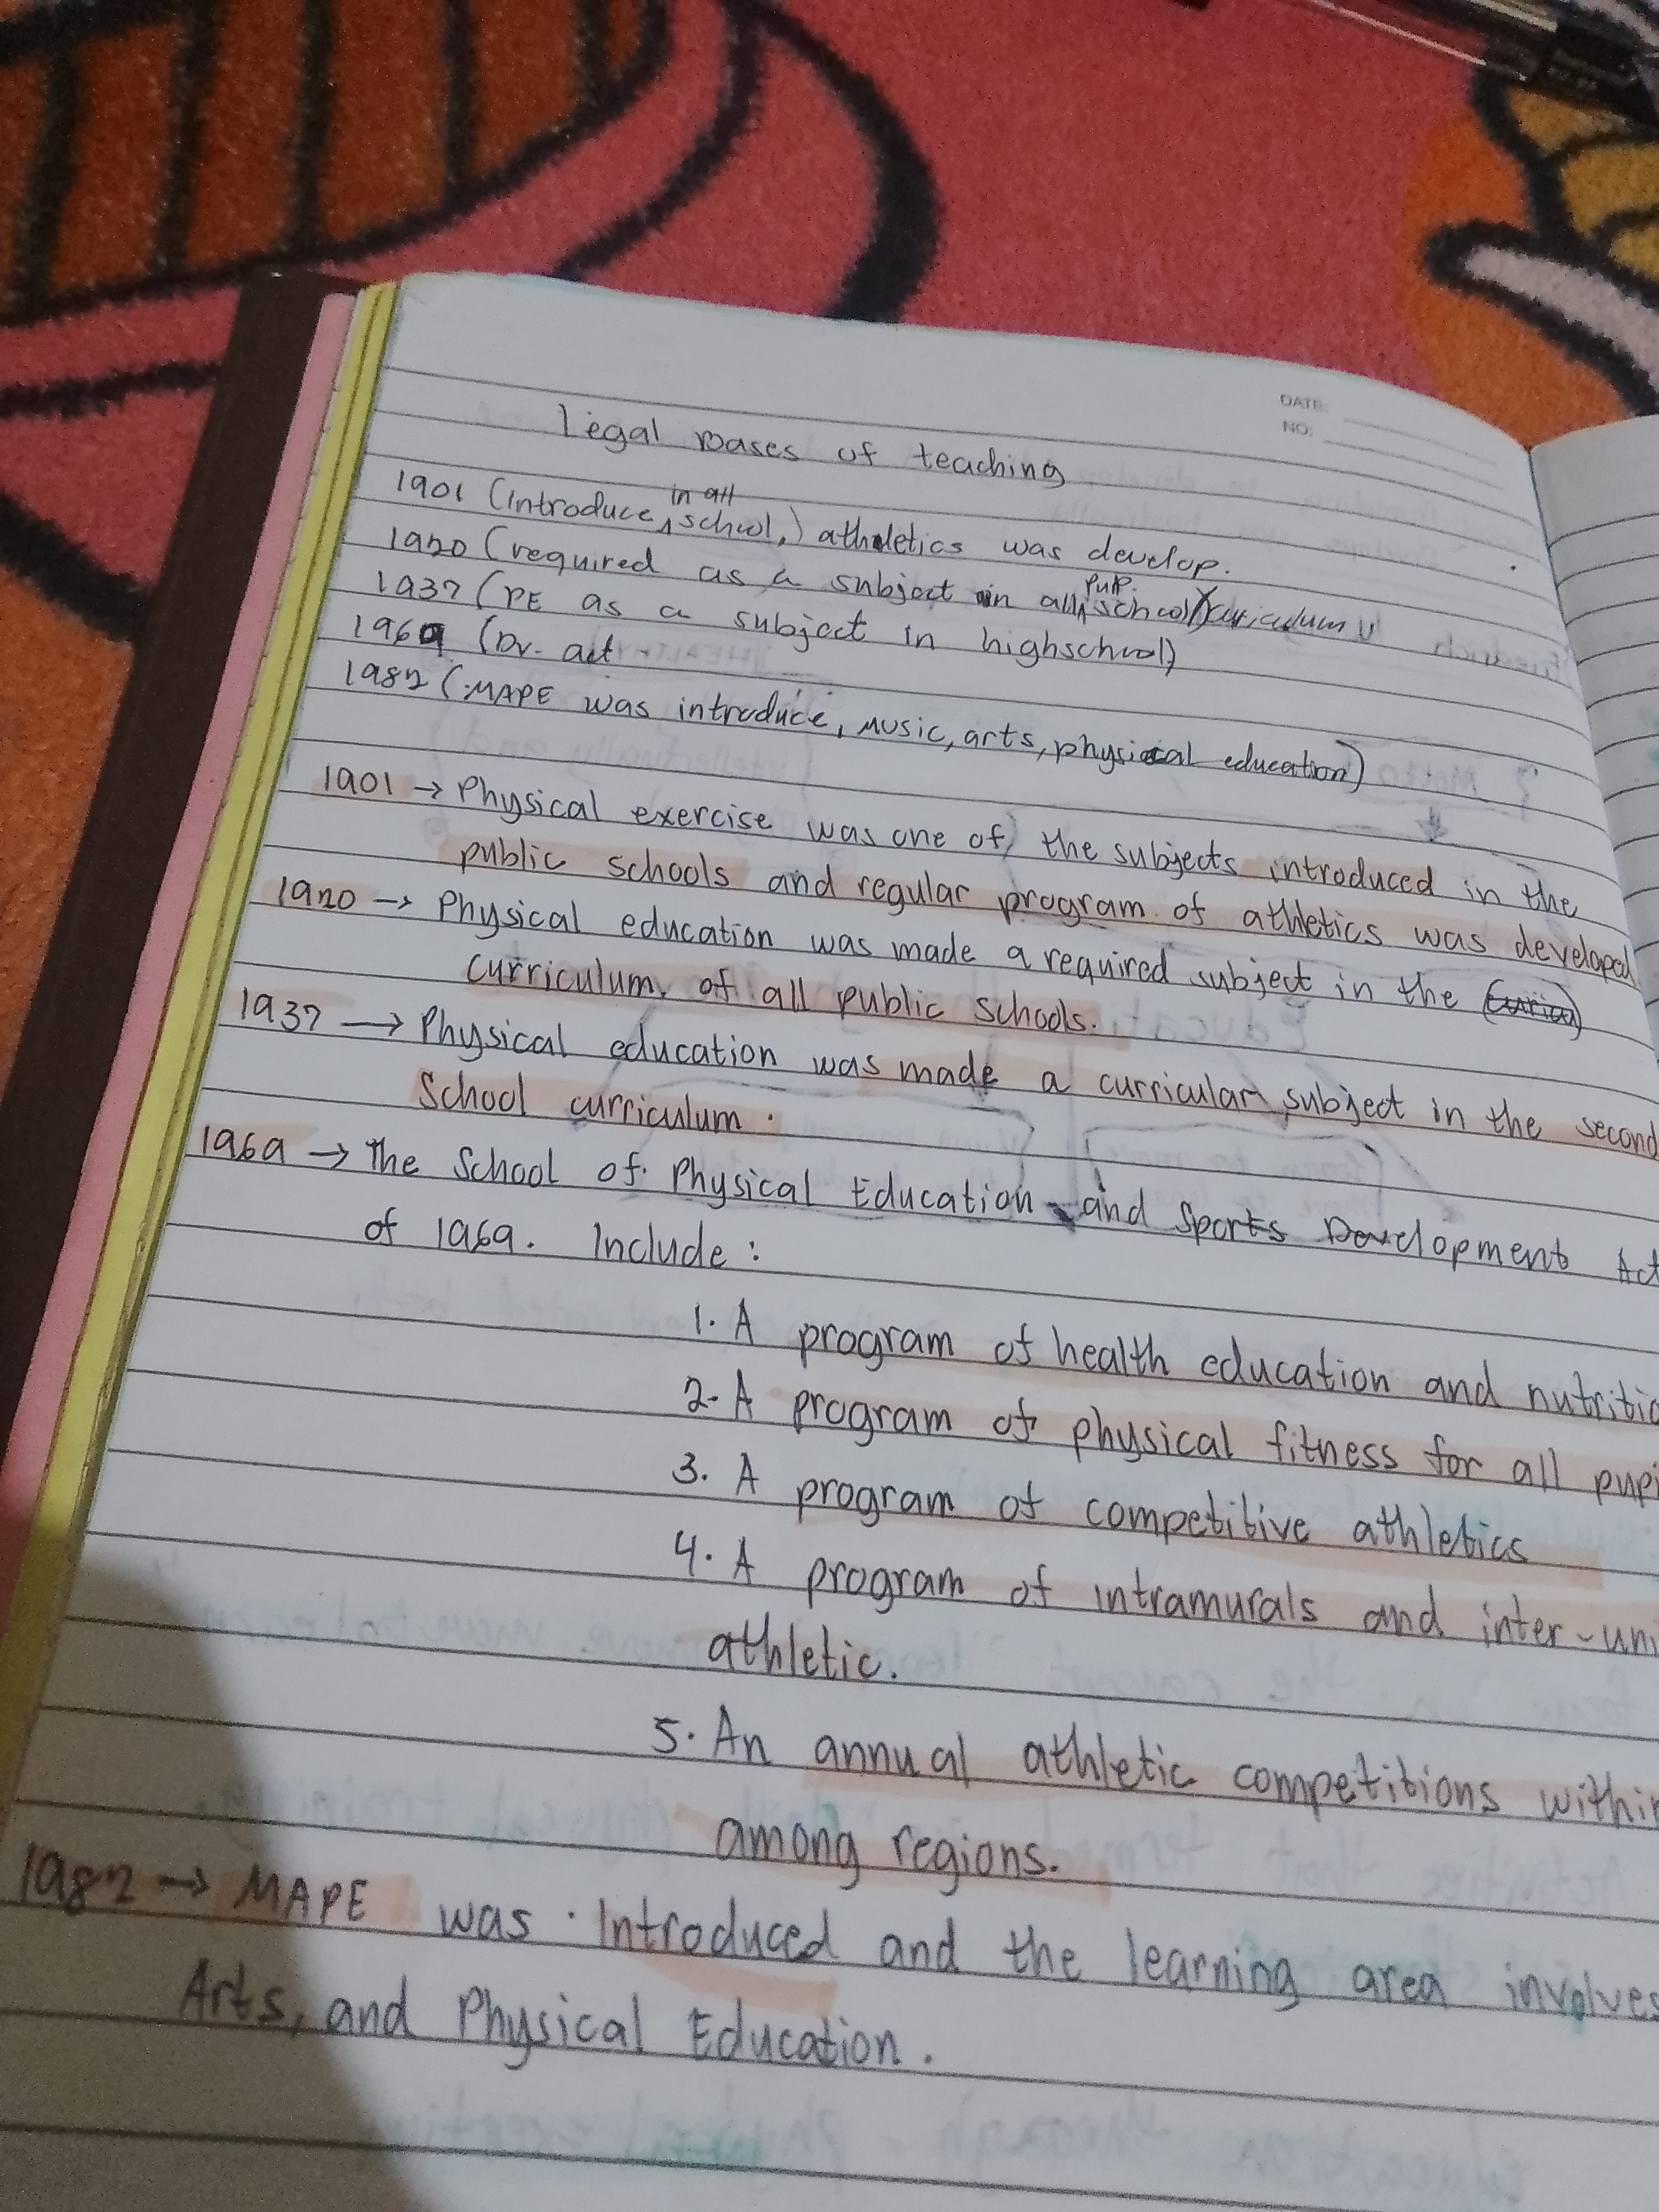 DATE:
NO:
Legal bases of teaching
in all
1901 (introduce, school,) athletics was develop.
pub.
1920 (required as a subject in all school) curiculum
1937 (PE as a subject in highschool)
1969 (Dv. act
1987 (MAPE was introduce, music, arts, physical education)
1901 → Physical exercise was one of the subjects introduced in the
public schools and regular program of athletics was developed
1920 → Physical education was made a required subject in the
curriculum, of all public schools.
1937 → Physical education was made a curricular subject in the second
School curriculum.
1969 → The School of Physical Education and Sports Development Act
of 1969. Include:
1. A program of health education and nutritio
2. A program of physical fitness for all pupi
3. A program of competitive athletics
4. A program of intramurals and inter-uni
athletic.
5. An annual athletic competitions within
among regions.
1987 → MAPE was Introduced and the learning area involves
Arts, and Physical Education.